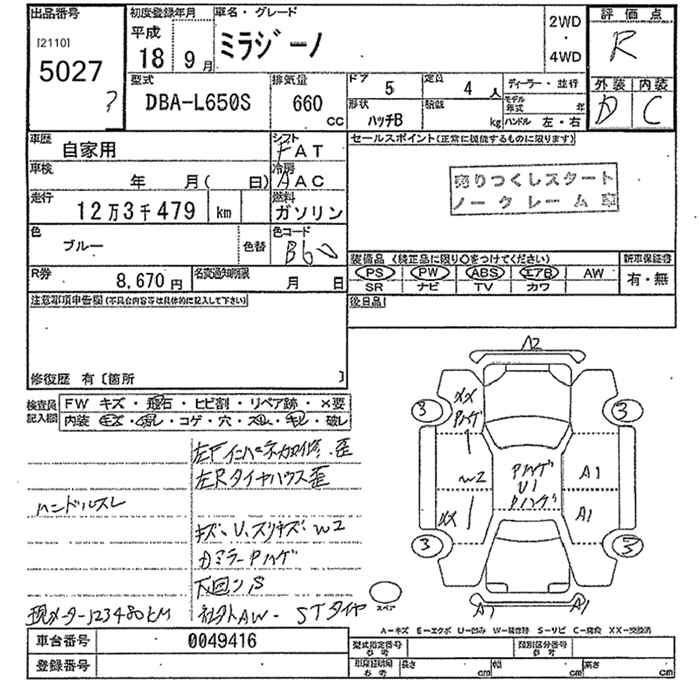 出品番号 初度登録年月 車名・グレード 2WD・4WD 評価点
[2110] 5027 平成 18 9月 ミラジーノ R
外装 内装
D C
型式 排気量 ドア 5 定員 4人 ディーラー・並行
DBA-L650S 660 cc 形状 ハッチB 積載 kg モデル年式 年
ハンドル 左・右
車歴 自家用 シフト FAT セールスポイント(正常に機能するものに限ります)
車検 年 月( 日) 冷房 AAC
売りつくしスタート
ノークレーム車
走行 12万3千479 km 燃料 ガソリン
色 ブルー 色替 色コード B60
装備品 (純正品に限り○をつけてください) 新車保証書
PS PW ABS エアB AW 有・無
SR ナビ TV カワ
R券 8,670円 名変通知期限 月 日
注意事項申告欄(不具合内容等は具体的に記入して下さい) 後日品
修復歴 有〔箇所 〕
検査員記入欄 FW キズ・飛石・ヒビ割・リペア跡・×要
内装・コゲ・穴・スレ・キレ・破レ
A2
XX Pハゲ
3 3
W2 Pハゲ U1 Pハゲ A1
XX A1
3 3
左Rタイヤハウス歪
ハンドルスレ
キズ、U、スリキズ、W2
ミラーPハゲ
下回りS
現メーター123480KM 社外AW・STタイヤ
スペア
A1
A-キズ E-エクボ U-凹み W-補修跡 S-サビ C-腐食 XX-交換済
車台番号 0049416 型式指定番号 参考 類別区分番号 参考
登録番号 参考 長さ cm 幅 cm 高さ cm